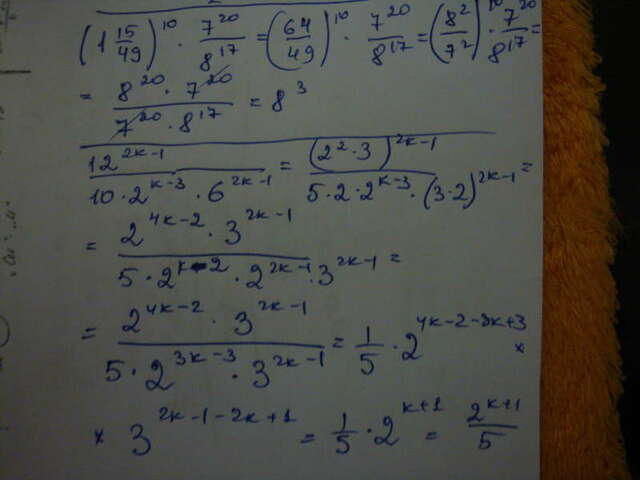 (1 15/49)^10 · 7^20/8^17 = (64/49)^10 · 7^20/8^17 = (8^2/7^2)^10 · 7^20/8^17 =
= (8^20 · 7^20)/(7^20 · 8^17) = 8^3
12^(2k-1)/(10 · 2^(k-3) · 6^(2k-1)) = (2^2 · 3)^(2k-1)/(5 · 2 · 2^(k-3) · (3 · 2)^(2k-1)) =
= (2^(4k-2) · 3^(2k-1))/(5 · 2^(k-2) · 2^(2k-1) · 3^(2k-1)) =
= (2^(4k-2) · 3^(2k-1))/(5 · 2^(3k-3) · 3^(2k-1)) = 1/5 · 2^(4k-2-3k+3) ×
× 3^(2k-1-2k+1) = 1/5 · 2^(k+1) = 2^(k+1)/5